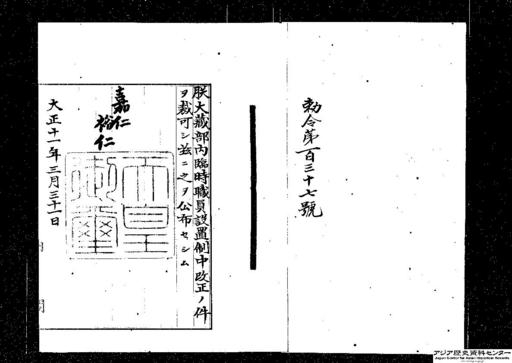 勅令第百三十七號
朕大藏部內臨時職員設置制中改正ノ件
ヲ裁可シ茲ニ之ヲ公布セシム
嘉仁
裕仁
天皇御璽
大正十一年三月三十一日
アジア歴史資料センター
Japan Center for Asian Historical Records